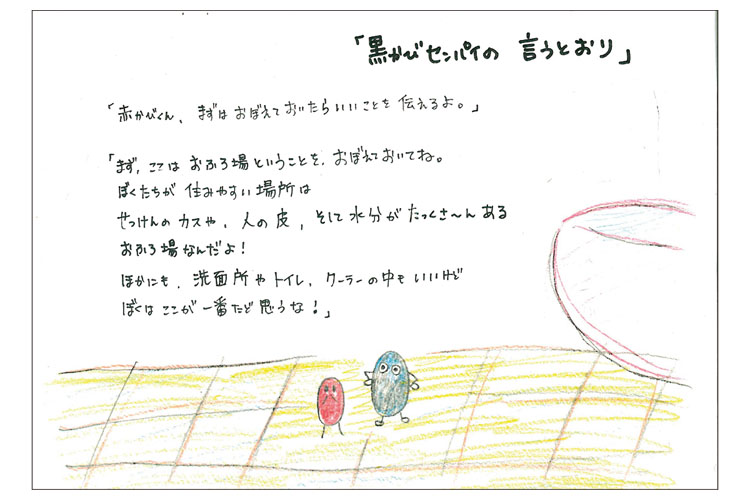 「黒かびセンパイの 言うとおり」
「赤かびくん、まずはおぼえておいたらいいことを伝えるよ。」
「まず、ここは おふろ場ということを、おぼえておいてね。
ぼくたちが 住みやすい場所は
せっけんのカスや、人の皮、そして水分がたっくさ〜んある
おふろ場なんだよ！
ほかにも、洗面所やトイレ、クーラーの中もいいけど
ぼくはここが一番だと思うな！」